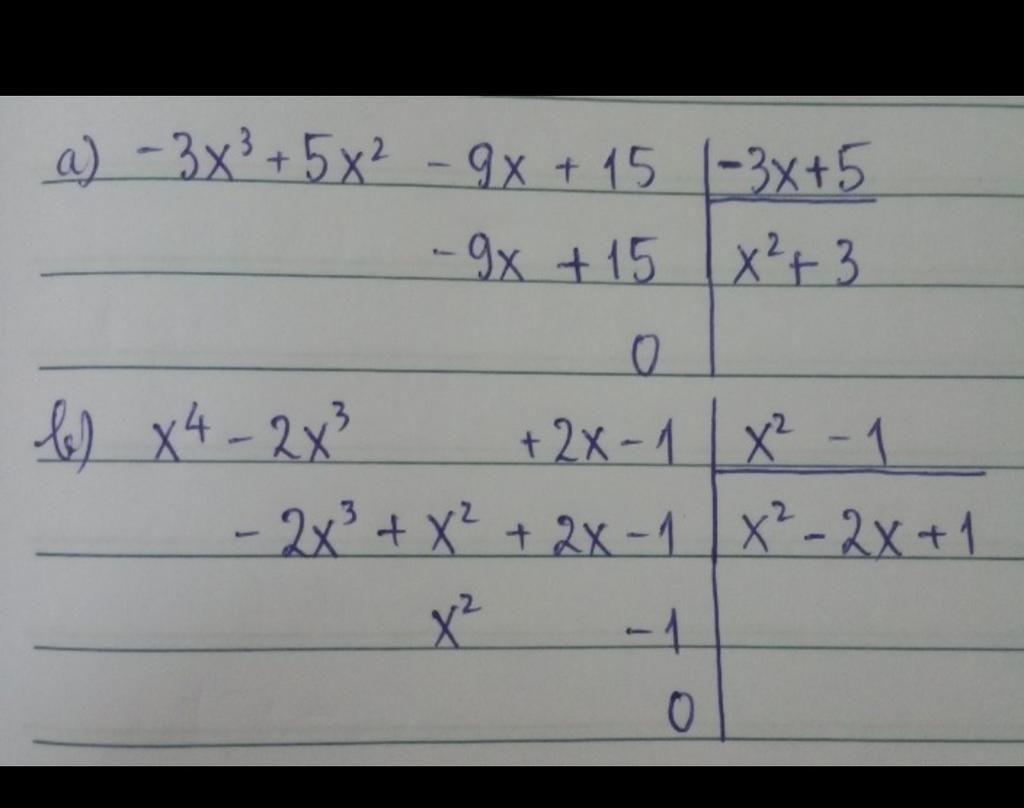 a) -3x³ + 5x² - 9x + 15 | -3x + 5
-9x + 15 | x² + 3
0
b) x⁴ - 2x³ + 2x - 1 | x² - 1
- 2x³ + x² + 2x - 1 | x² - 2x + 1
x² - 1
0